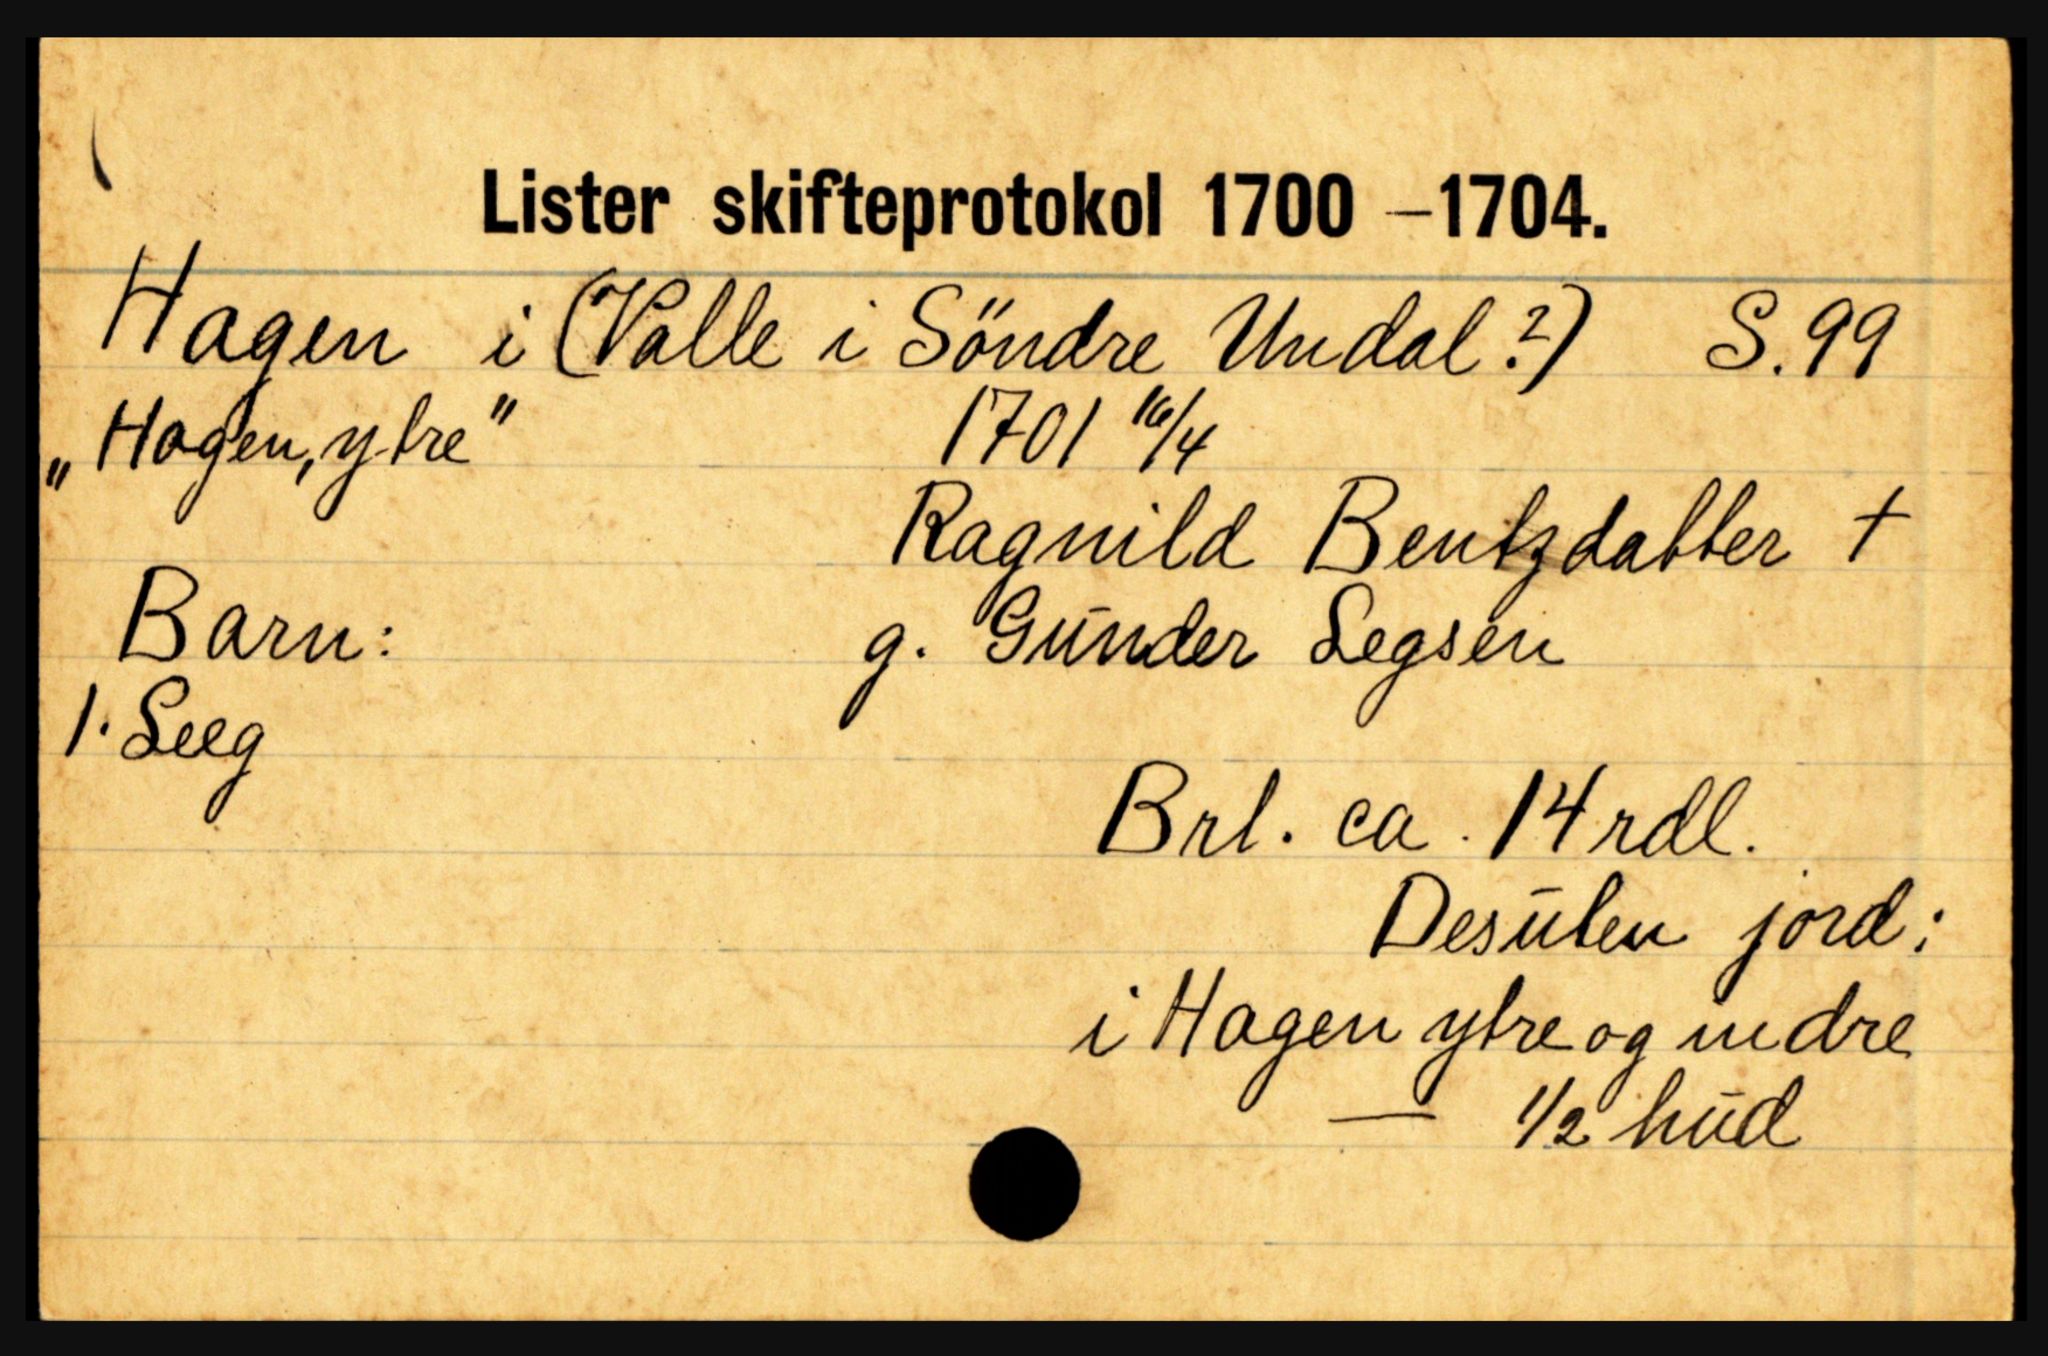 Lister skifteprotokol 1700 –1704.
Hagen i (Valle i Söndre Undal?) S. 99
„Hagen, ytre" 1701 16/4
Ragnild Bentzdatter †
Barn: g. Gunder Legsen
1. Leeg
Brl. ca. 14 rdl.
Desuten jord:
i Hagen ytre og indre
— 1/2 hud